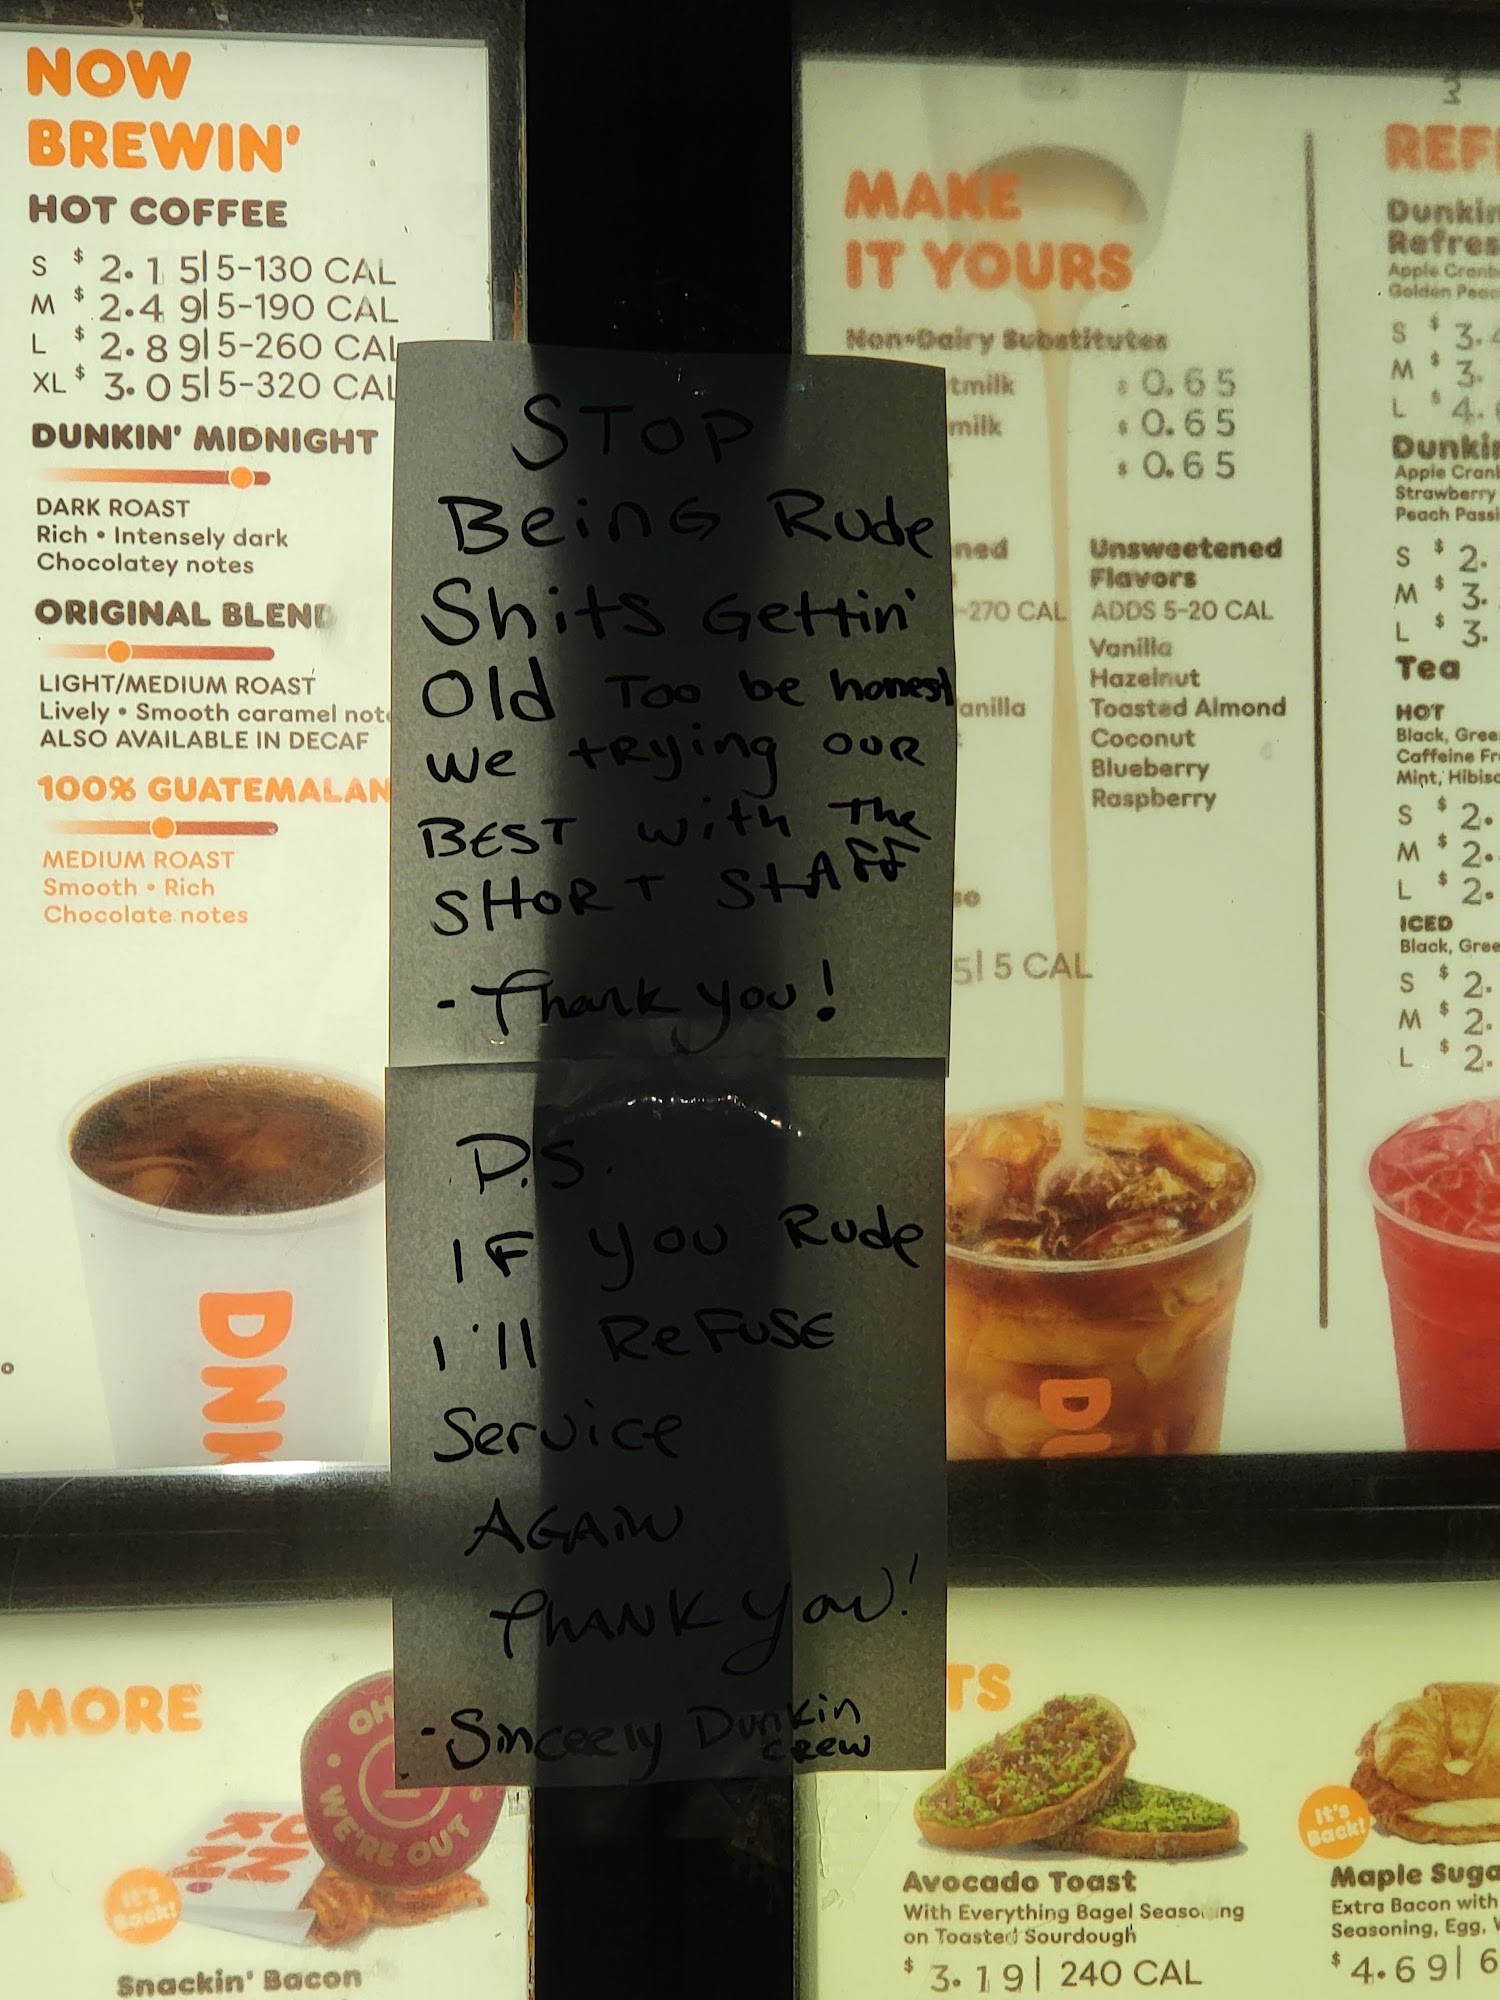 NOW
BREWIN'
HOT COFFEE
S $ 2.15| 5-130 CAL
M $ 2.49| 5-190 CAL
L $ 2.89| 5-260 CAL
XL $ 3.05| 5-320 CAL
DUNKIN' MIDNIGHT
DARK ROAST
Rich • Intensely dark
Chocolatey notes
ORIGINAL BLEND
LIGHT/MEDIUM ROAST
Lively • Smooth caramel note
ALSO AVAILABLE IN DECAF
100% GUATEMALAN
MEDIUM ROAST
Smooth • Rich
Chocolate notes
DNK
STOP
Being Rude
Shits Gettin'
Old Too be honest
we trying our
BEST with The
SHORT STAFF
- Thank you!
P.S.
IF you Rude
I'll ReFUSE
Service
AGAIN
THANK you!
- Sinceely Dunkin
crew
MAKE
IT YOURS
Non-Dairy Substitutes
tmilk $ 0.65
milk $ 0.65
$ 0.65
ned
-270 CAL
anilla
5| 5 CAL
Unsweetened
Flavors
ADDS 5-20 CAL
Vanilla
Hazelnut
Toasted Almond
Coconut
Blueberry
Raspberry
DU
REF
Dunkin
Refres
Apple Cranb
Golden Peac
S $ 3.
M $ 3.
L $ 4.
Dunkin
Apple Cranb
Strawberry
Peach Passi
S $ 2.
M $ 3.
L $ 3.
Tea
HOT
Black, Gree
Caffeine Fr
Mint, Hibisc
S $ 2.
M $ 2.
L $ 2.
ICED
Black, Gree
S $ 2.
M $ 2.
L $ 2.
MORE
OH
WE'RE OUT
It's
Back!
Snackin' Bacon
TS
Avocado Toast
With Everything Bagel Seasoning
on Toasted Sourdough
$ 3.19| 240 CAL
It's
Back!
Maple Suga
Extra Bacon with
Seasoning, Egg,
$ 4.69| 6